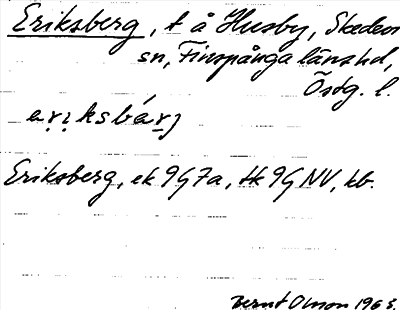 Eriksberg, t å Husby, Skedevi
sn, Finspånga länshd,
Östg. l.
Eriksberg, ek 9G7a, tk 9G NV, kb.
Bernt Olsson 1963.